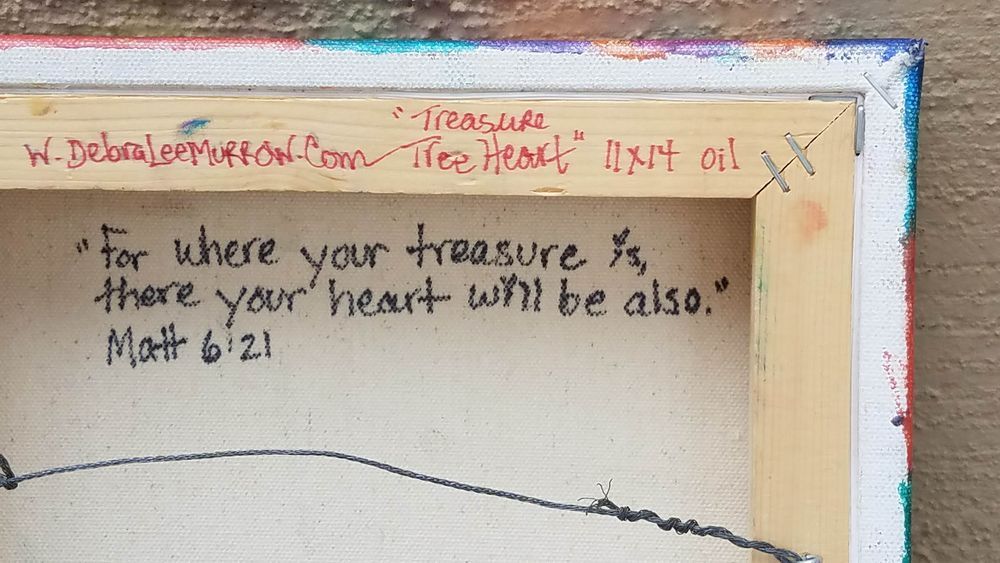 "Treasure
W.DebraLeeMurrow.Com Tree Heart" 11x14 oil
"For where your treasure is,
there your heart will be also."
Matt 6:21